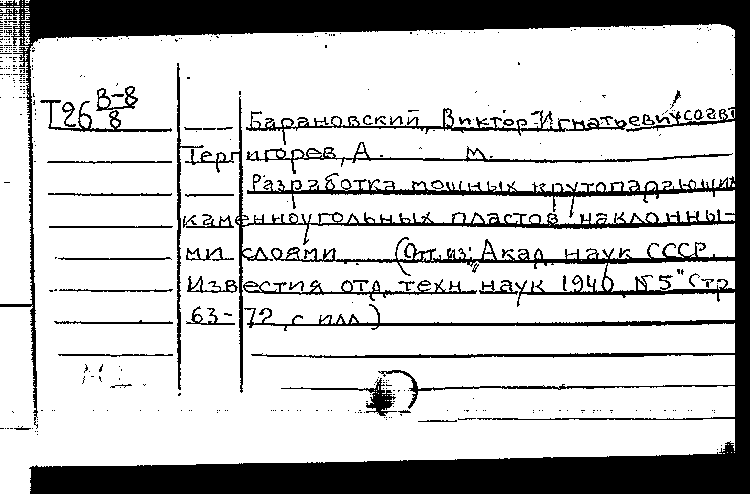 Т26 В-8/8
Барановский, Виктор Игнатьевич, соавт
Терпигорев, А. М.
Разработка мощных крутопадающих
каменноугольных пластов наклонны-
ми слоями (Отт. из: „Акад. наук СССР.
Известия отд. техн. наук 1940, №5" Стр
63-72, с илл.)